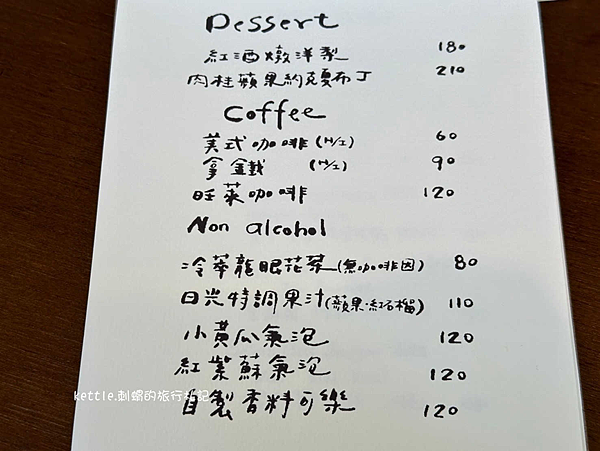 Dessert
紅酒燉洋梨 180
肉桂蘋果約克夏布丁 210
Coffee
美式咖啡 (H/I) 60
拿鐵 (H/I) 90
旺萊咖啡 120
Non alcohol
冷萃龍眼花茶(無咖啡因) 80
日光特調果汁(蘋果.紅石榴) 110
小黃瓜氣泡 120
紅紫蘇氣泡 120
自製香料可樂 120
kettle.刺蝟的旅行札記